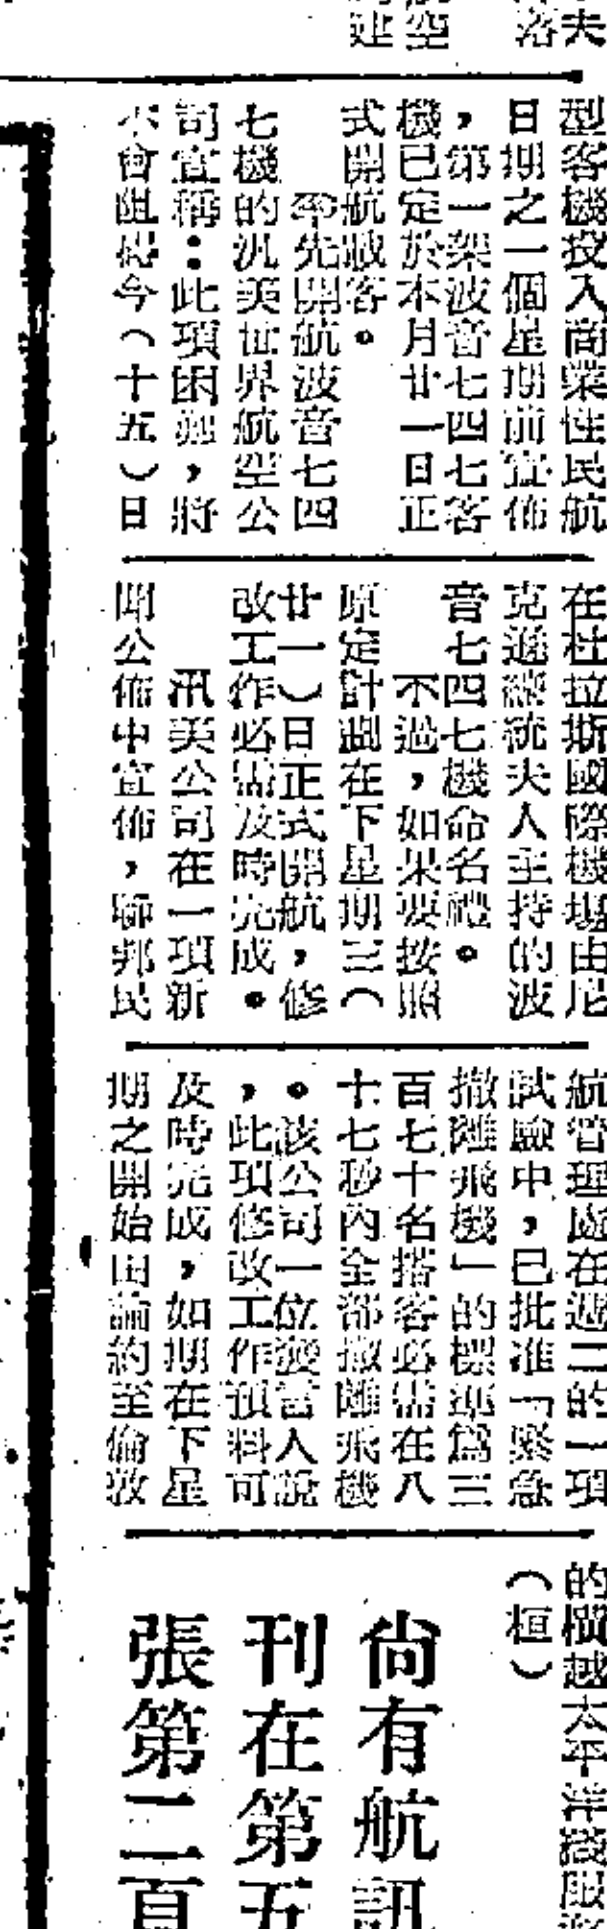 型客機投入商業性民航
日期之一個星期前宣佈
，第一架波音七四七客
機已定於本月廿一日正
式開航載客。
率先開航波音七四
七機的汎美世界航空公
司宣稱：此項困難，將
不會阻碍今（十五）日
在杜拉斯國際機場由尼
克遜總統夫人主持的波
音七四七機命名禮。
不過，如果要按照
原定計劃在下星期三（
廿一）日正式開航，修
改工作必需及時完成。
汎美公司在一項新
聞公佈中宣佈，聯邦民
航管理處在週二的一項
試驗中，已批准「緊急
撤離飛機」的標準爲三
百七十名搭客必需在八
十七秒內全部撤離飛機
。該公司一位發言人說
，此項修改工作預料可
及時完成，如期在下星
期之開始由紐約至倫敦
的橫越太平洋綫服
（桓）
尙有航訊
刊在第五
張第二頁